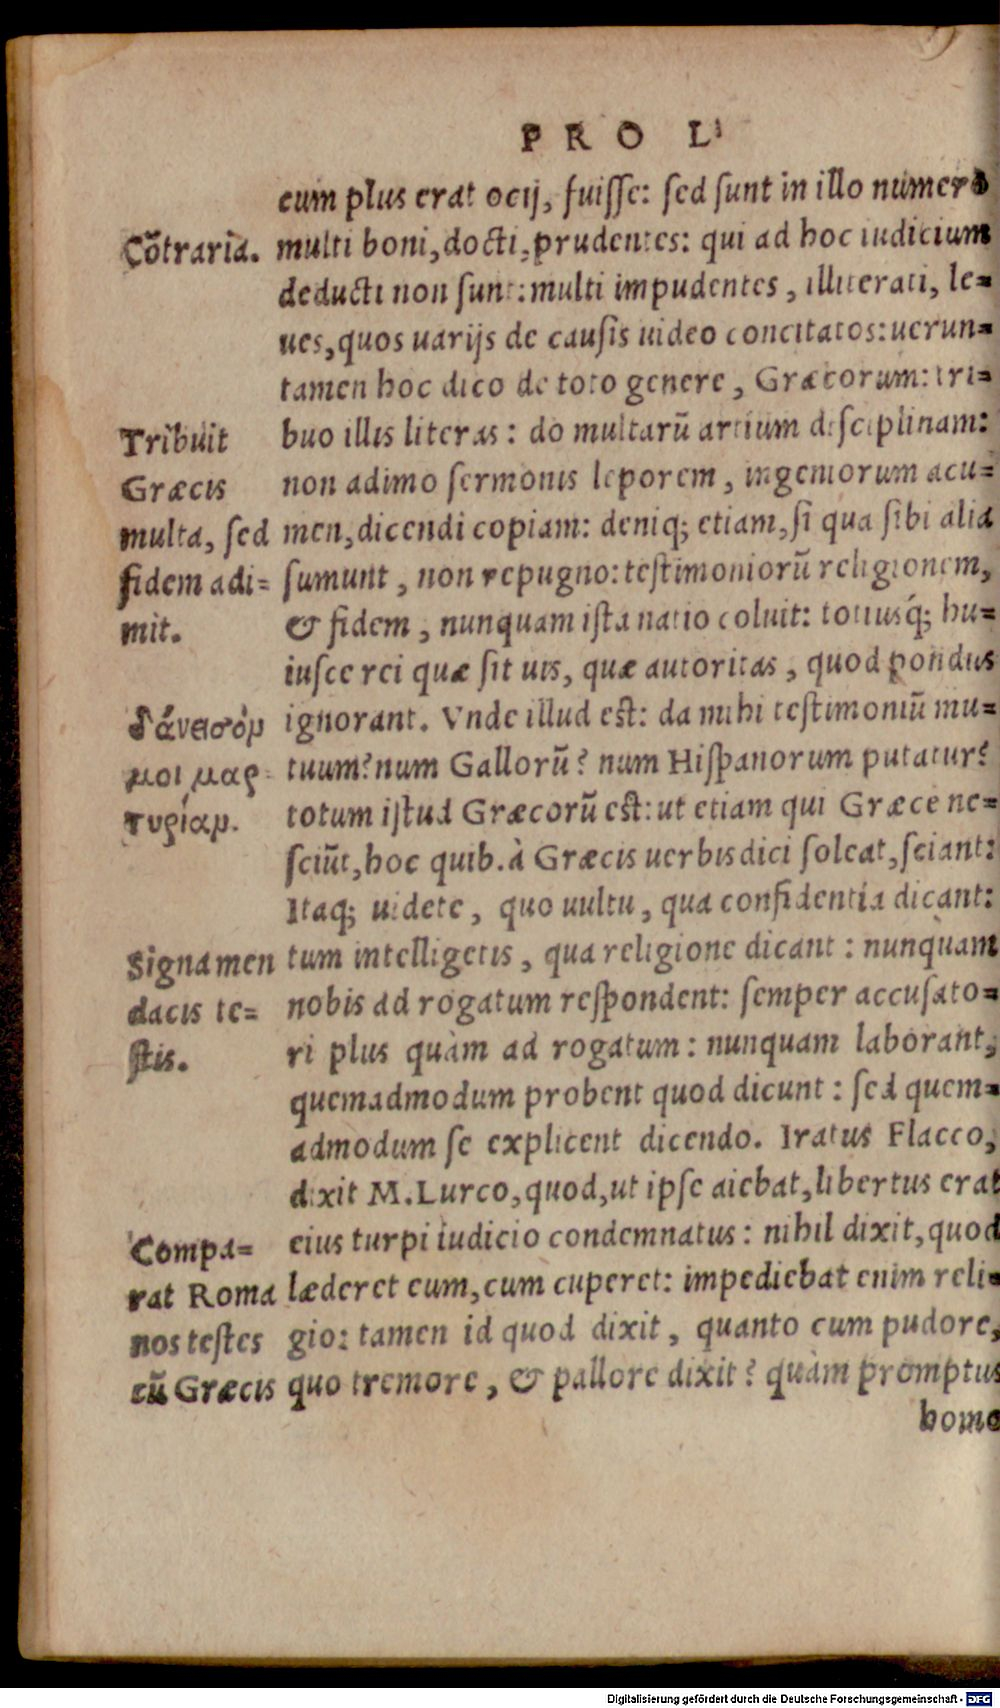 PRO L
cum plus erat ocij, fuisse: sed sunt in illo numero
Cõtraria.
multi boni, docti, prudentes: qui ad hoc iudicium
deducti non sunt: multi impudentes, illiterati, le=
ues, quos uarijs de causis uideo concitatos: uerun=
tamen hoc dico de toto genere, Græcorum: tri=
Tribuit
Græcis
multa, sed
fidem adi=
mit.
buo illis literas: do multarũ artium disciplinam:
non adimo sermonis leporem, ingeniorum acu=
men, dicendi copiam: deniq; etiam, si qua sibi alia
sumunt, non repugno: testimoniorũ religionem,
& fidem, nunquam ista natio coluit: totiusq́; hu=
iusce rei quæ sit uis, quæ autoritas, quod pondus
δάνεισόμ
μοι μαρ=
τυρίαμ.
ignorant. Vnde illud est: da mihi testimoniũ mu=
tuum? num Gallorũ? num Hispanorum putatur?
totum istud Græcorũ est: ut etiam qui Græce ne=
sciũt, hoc quib. à Græcis uerbis dici soleat, sciant:
Itaq; uidete, quo uultu, qua confidentia dicant:
Signa men
dacis te=
stis.
tum intelligetis, qua religione dicant: nunquàm
nobis ad rogatum respondent: semper accusato=
ri plus quàm ad rogatum: nunquam laborant,
quemadmodum probent quod dicunt: sed quem=
admodum se explicent dicendo. Iratus Flacco,
dixit M. Lurco, quod, ut ipse aiebat, libertus erat
Compa=
rat Roma
nos testes
cũ Græcis
eius turpi iudicio condemnatus: nihil dixit, quod
læderet eum, cum cuperet: impediebat enim reli=
gio: tamen id quod dixit, quanto cum pudore,
quo tremore, & pallore dixit? quàm promptus
homo
Digitalisierung gefördert durch die Deutsche Forschungsgemeinschaft - DFG